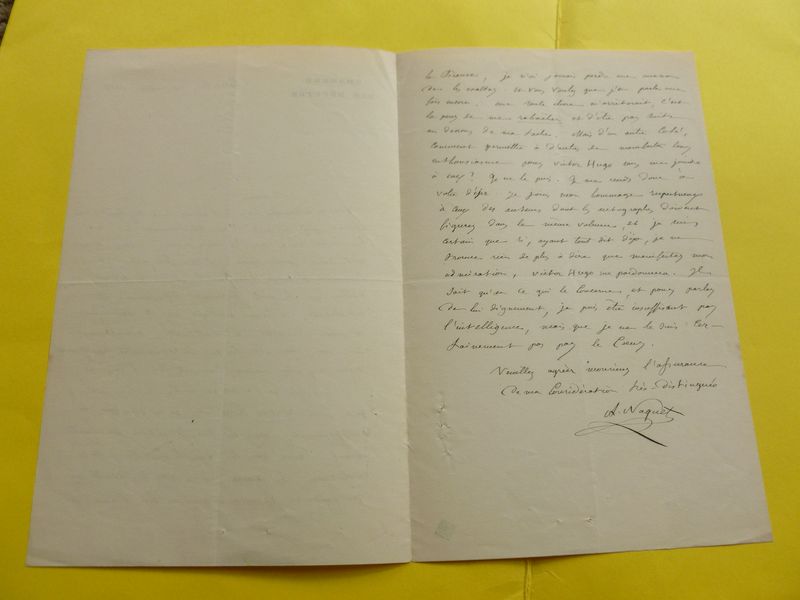 le Pirée, je n'ai jamais perdu une occasion
de les exalter. Et vous voulez que j'en parle une
fois encore. Une seule chose m'arrêterait, c'est
la peur de me rabacher, et d'être pas suite
au dessous de ma tache. Mais d'un autre côté,
comment permettre à d'autres de manifester leur
enthousiasme pour Victor Hugo sans me joindre
à eux? Je ne le puis. Je me rends donc à
votre désir. Je joins mon hommage respectueux
à ceux des auteurs dont les autographes doivent
figurer dans le même volume, et je suis
certain que si, ayant tout dit déjà, je ne
trouve rien de plus à dire que manifester mon
admiration, Victor Hugo me pardonnera. Il
sait qu'en ce qui le concerne, et pour parler
de lui dignement, je puis être insuffisant par
l'intelligence, mais que je ne le suis cer-
tainement pas par le coeur.
Veuillez agréer monsieur l'assurance
de ma considération très-distinguée
A. Naquet